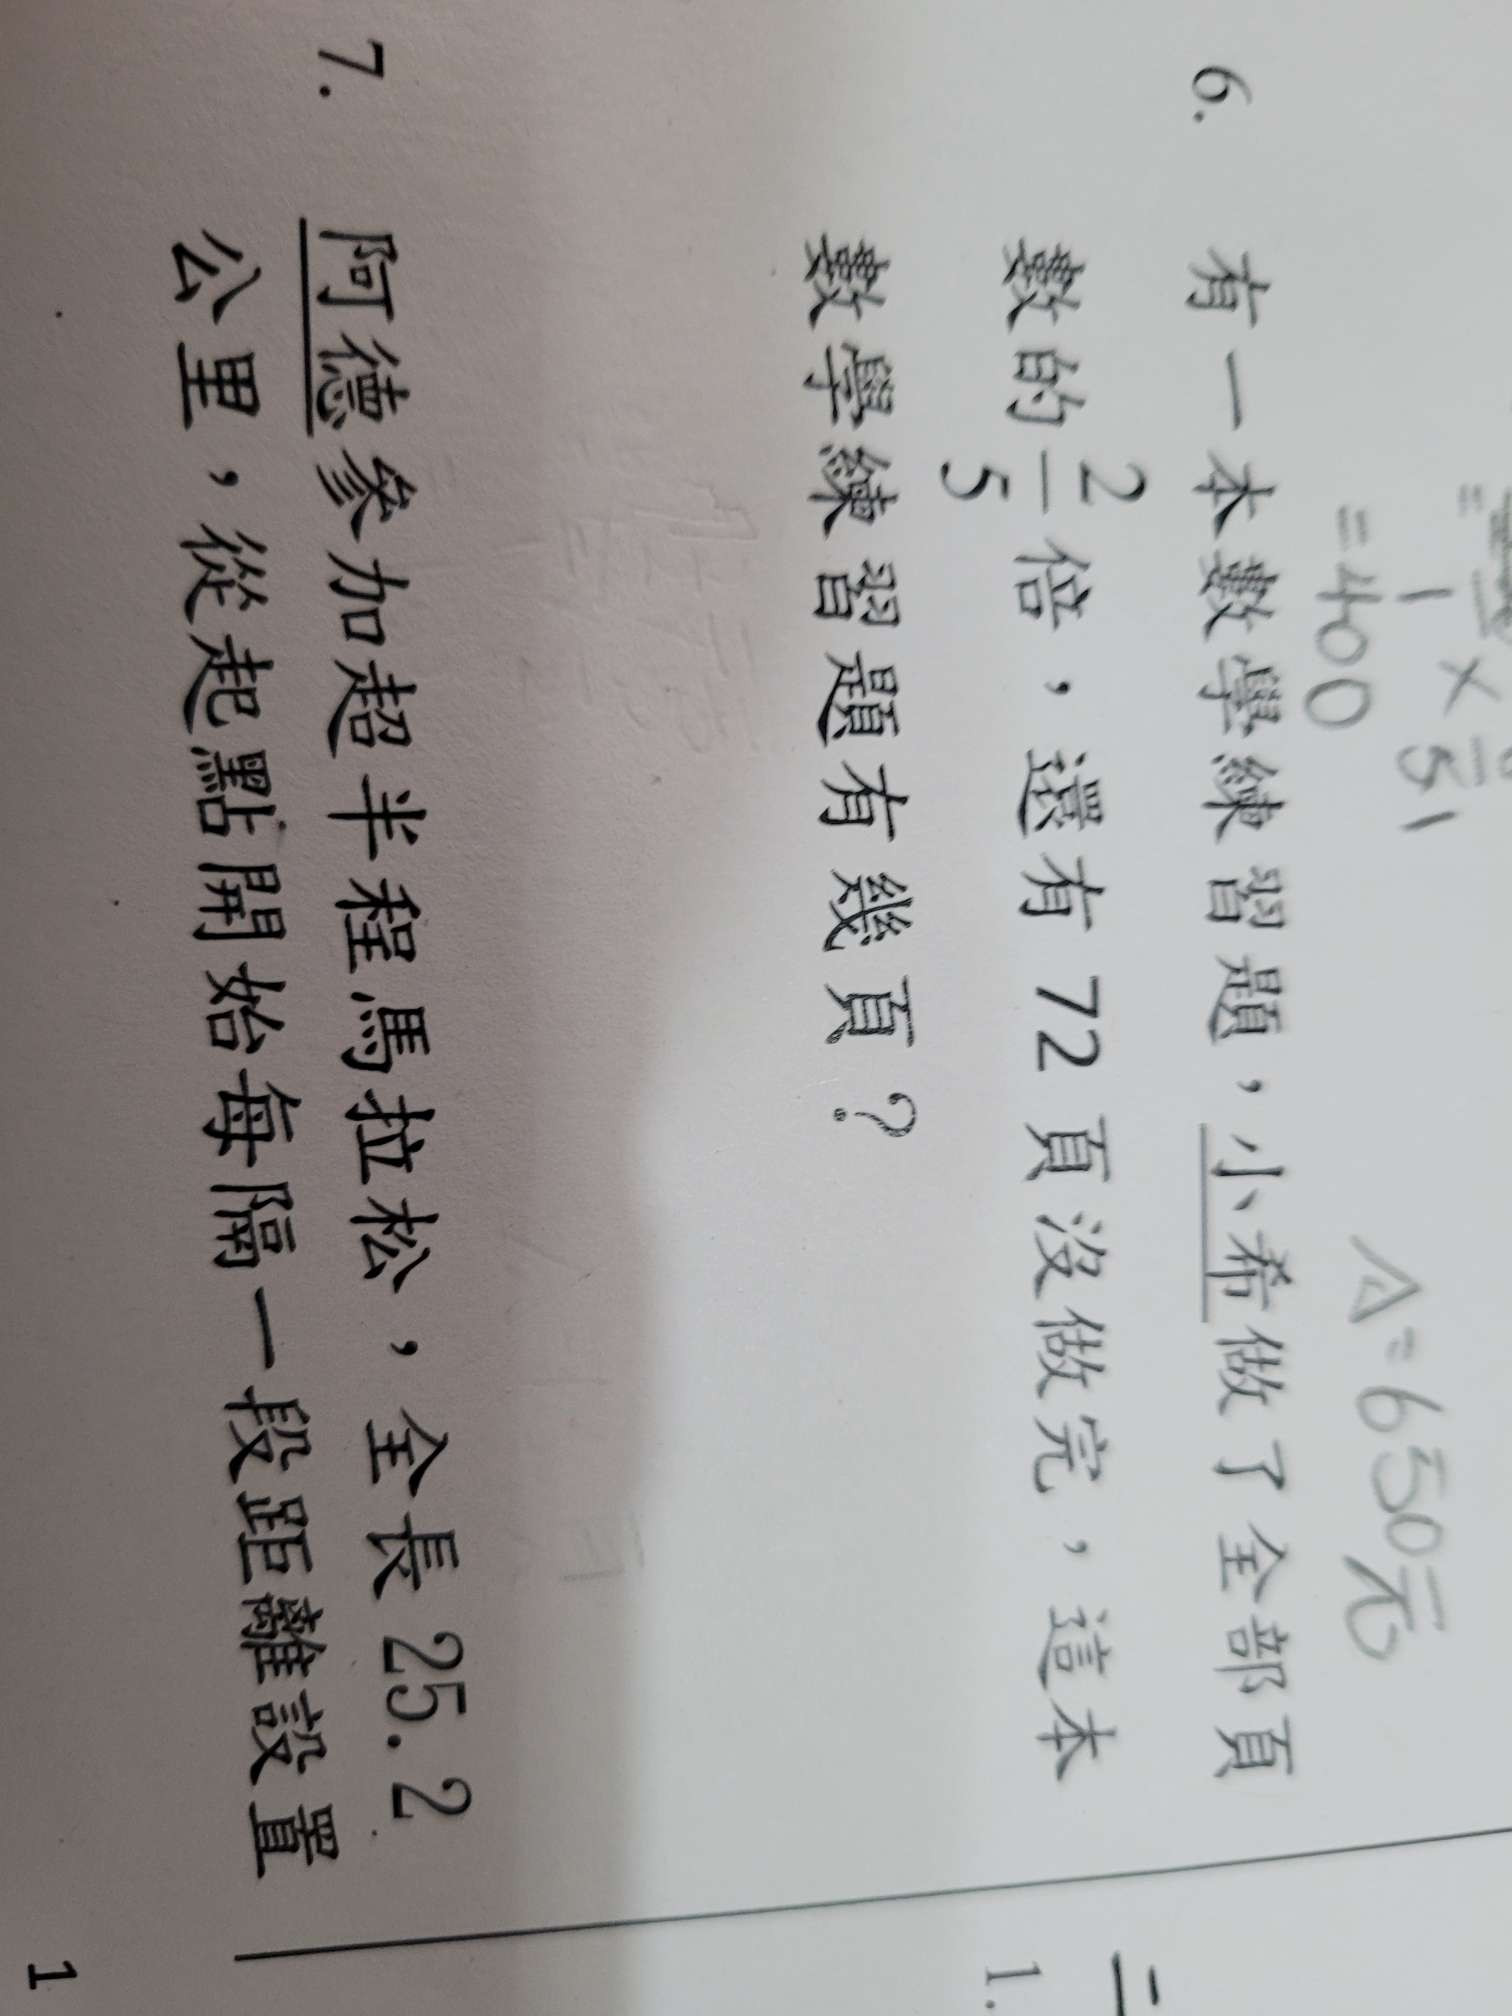 =400
A=650元
6. 有一本數學練習題，小希做了全部頁
數的 2/5 倍，還有 72 頁沒做完，這本
數學練習題有幾頁？
7. 阿德參加超半程馬拉松，全長 25.2
公里，從起點開始每隔一段距離設置
二
1.
1